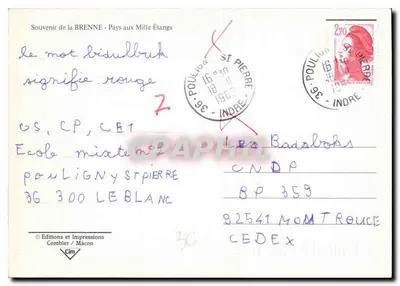 Souvenir de la BRENNE - Pays aux Mille Étangs
le mot bidulbuk
signifie rouge
2
GS, CP, CE1
Ecole mixte n°2
POULIGNY ST PIERRE
36 300 LE BLANC
© Editions et Impressions
Combier / Mâcon
Cim
36 - POULIGNY ST PIERRE
- INDRE -
2,20
36 - POULIGNY ST PIERRE
- INDRE -
Les Badaboks
CNDP
BP 359
92541 MONTROUGE
CEDEX
36